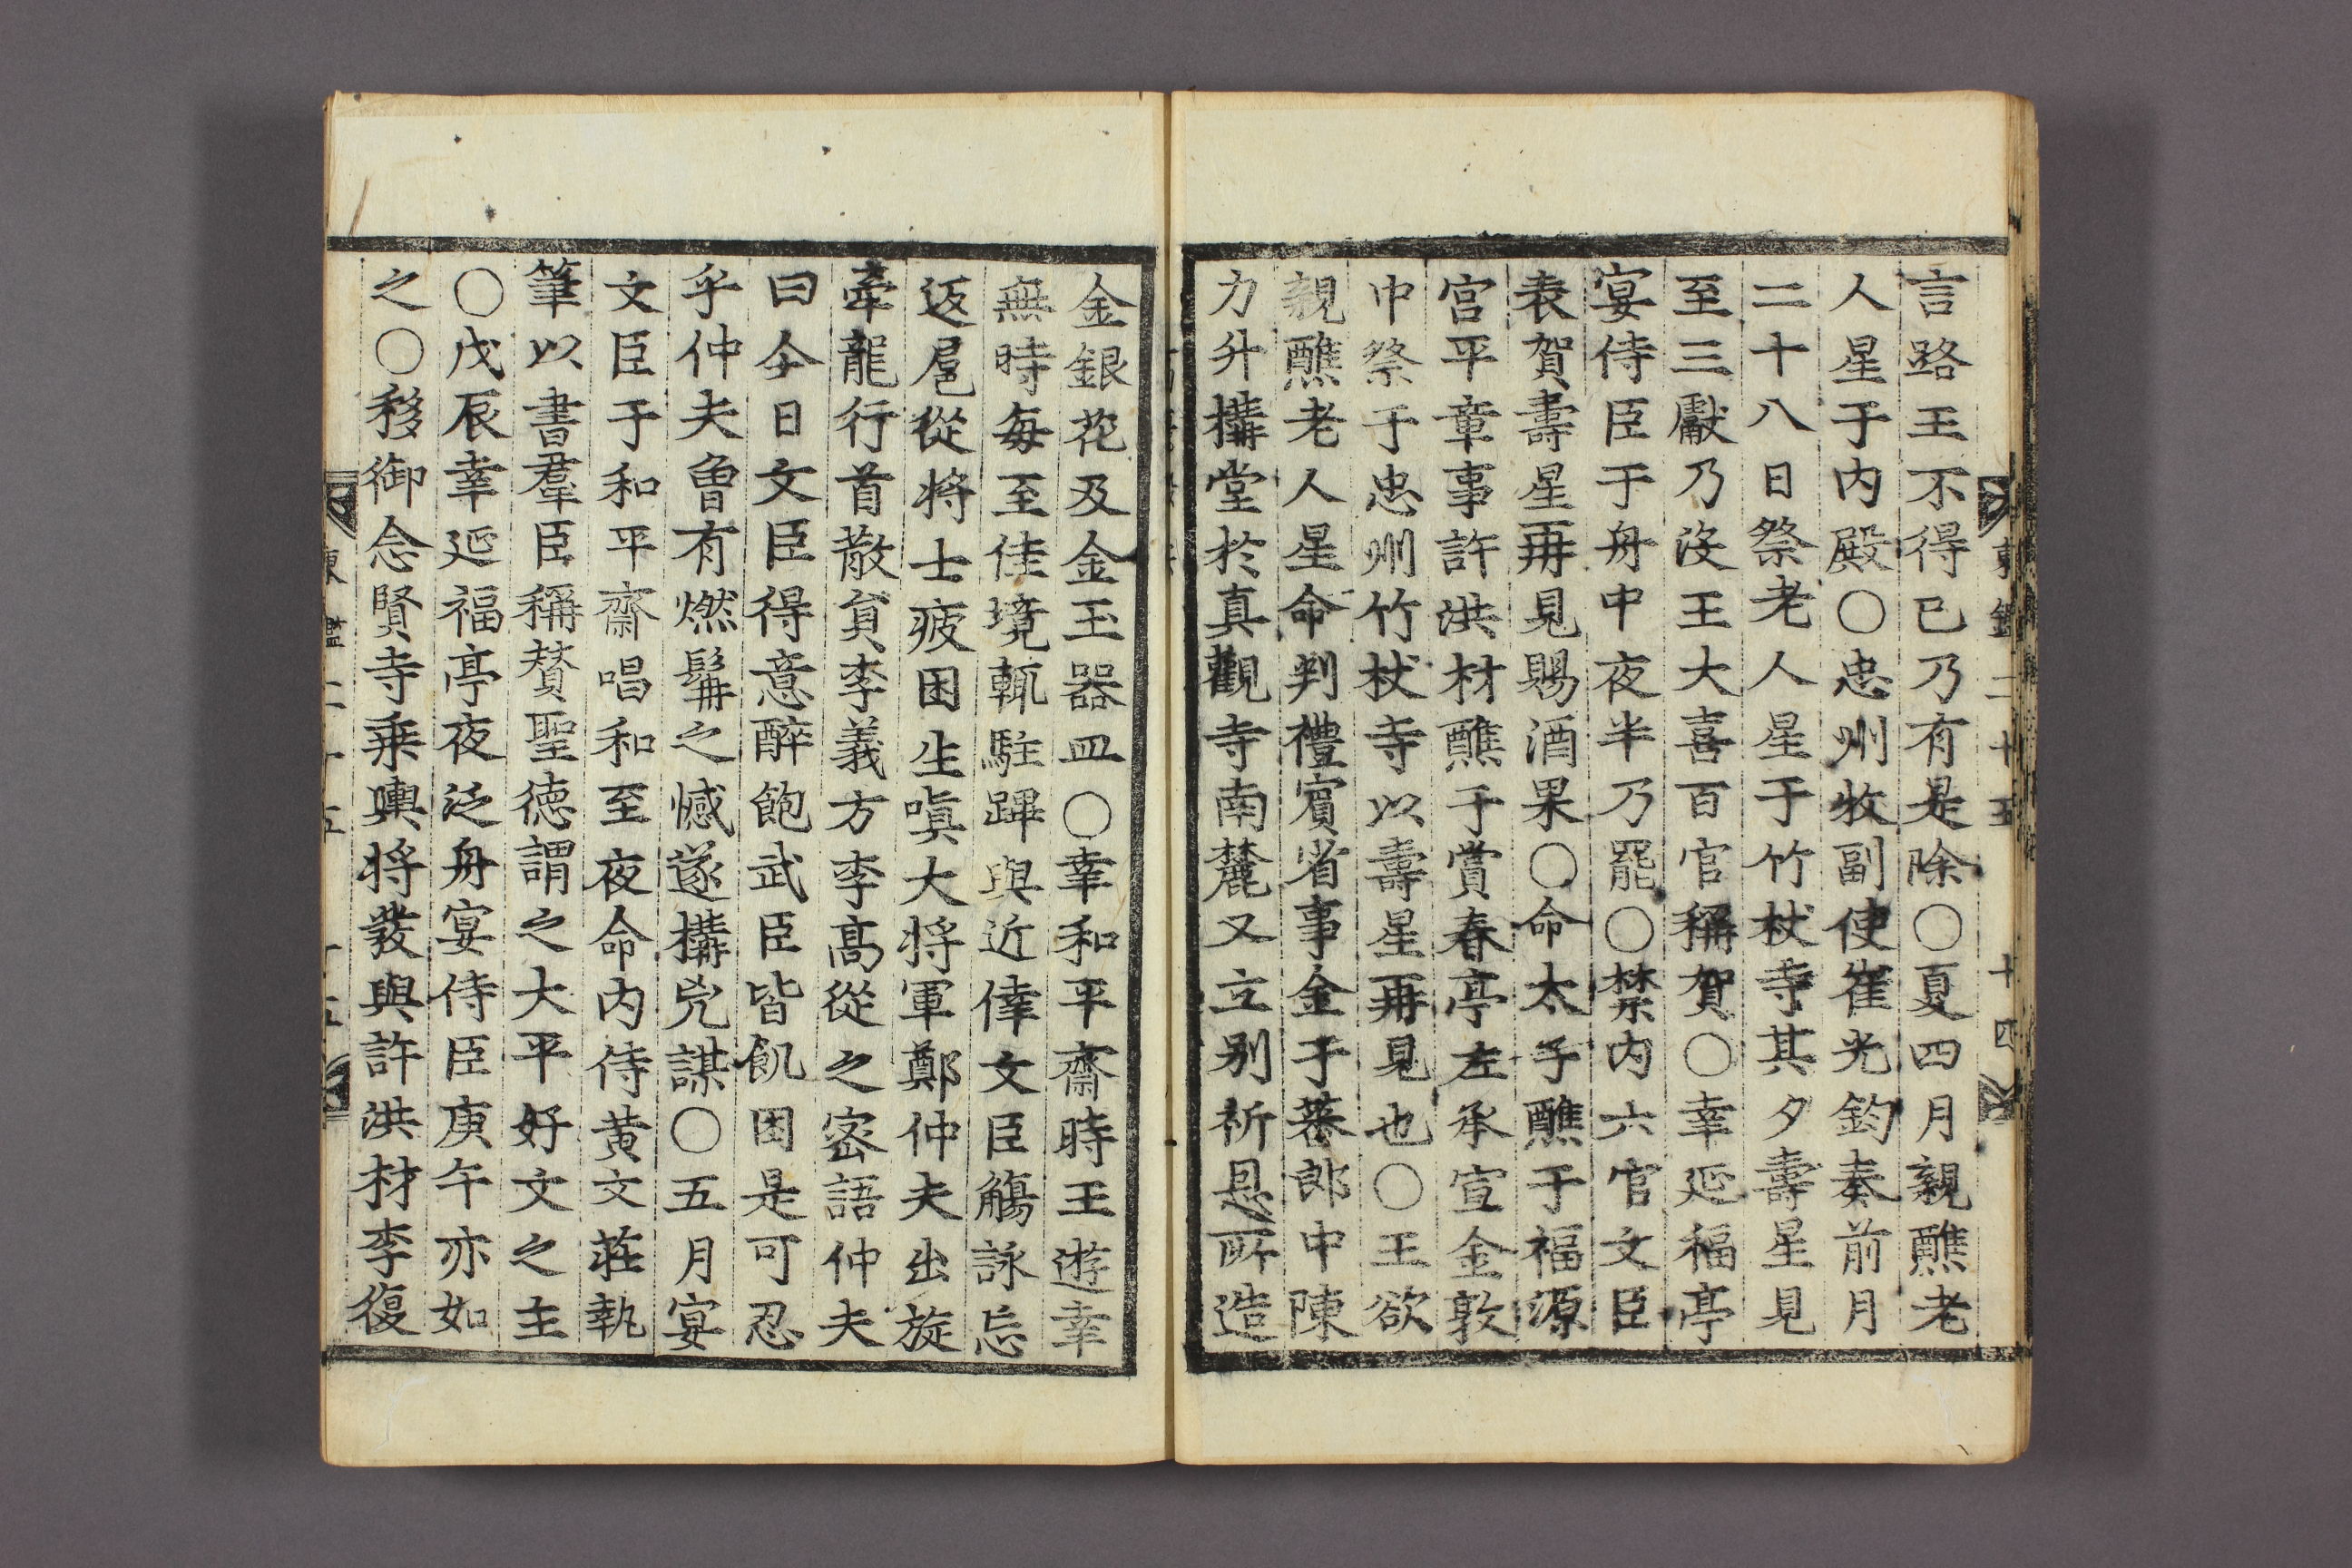 東鑑二十五 十四
言路王不得已乃有是除○夏四月親醮老
人星于内殿○忠州牧副使崔光鈞奏前月
二十八日祭老人星于竹杖寺其夕壽星見
至三獻乃沒王大喜百官稱賀○幸延福亭
宴侍臣于舟中夜半乃罷○禁内六官文臣
表賀壽星再見賜酒果○命太子醮于福源
宮平章事許洪材醮于賞春亭左承宣金敦
中祭于忠州竹杖寺以壽星再見也○王欲
親醮老人星命判禮賓省事金于蕃郎中陳
力升構堂於真觀寺南麓又立别祈恩所造
金銀花及金玉器皿○幸和平齋時王遊幸
無時每至佳境輒駐蹕與近倖文臣觴詠忘
返扈從將士疲困生嗔大將軍鄭仲夫出旋
牽龍行首散貟李義方李髙從之密語仲夫
曰今日文臣得意醉飽武臣皆飢困是可忍
乎仲夫曽有燃鬚之憾遂構兇謀○五月宴
文臣于和平齋唱和至夜命内侍黄文莊執
筆以書羣臣稱賛聖德謂之大平好文之主
○戊辰幸延福亭夜泛舟宴侍臣庚午亦如
之○移御念賢寺乗輿將發與許洪材李復
東鑑二十五 十五